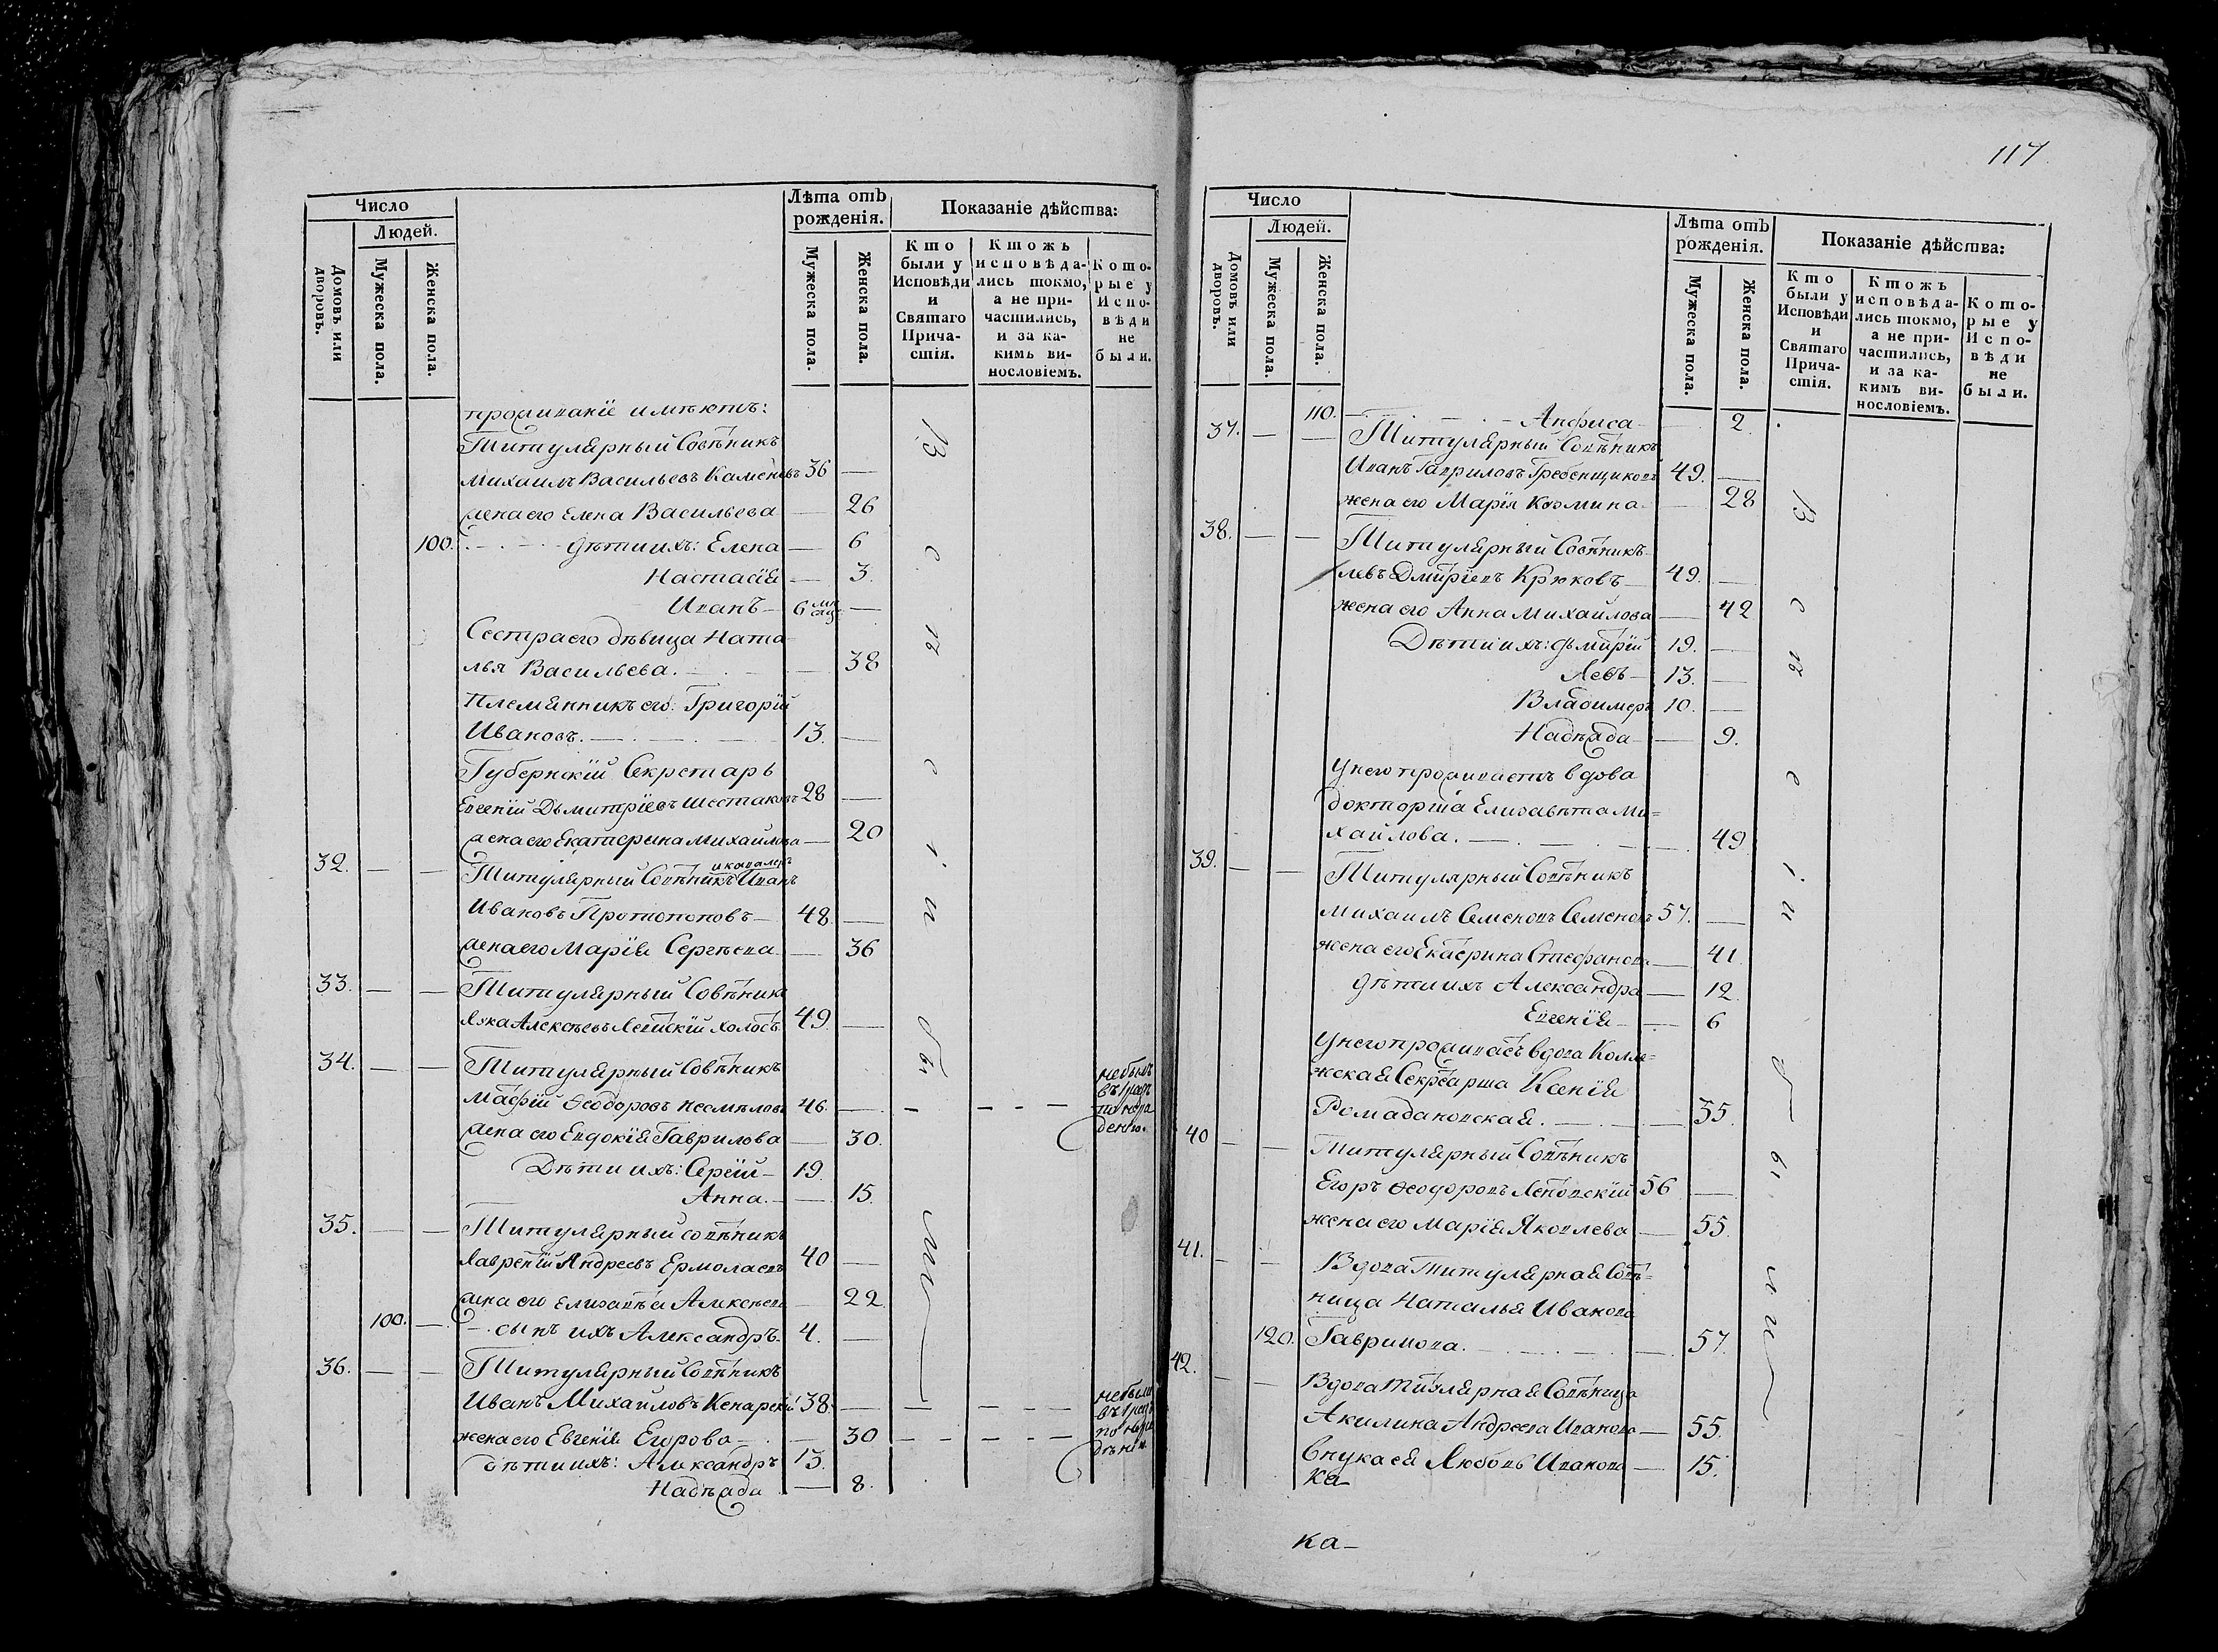 Число
Людей.
Домовъ или дворовъ.
Мужеска пола.
Женска пола.
Лѣта отъ рожденія.
Мужеска пола.
Женска пола.
Показаніе дѣйства:
Кто были у Исповѣди и Святаго Прича-стія.
Ктожъ исповѣда-лись токмо, а не при-частились, и за ка-кимъ ви-нословіемъ.
Кото-рые у Испо-вѣди не были.
проживаніе имѣютъ:
Титулярный Совѣтникъ
Михаилъ Васильевъ Каменевъ 36 —
жена его Елена Васильева — 26
100. дѣти ихъ: Елена — 6
Настасія — 3.
Иванъ — 6 —
Сестра его дѣвица Ната
лья Васильева. — 38
Племянникъ его: Григорій
Ивановъ. — 13. —
Губернскій Секретарь
Евгеній Дьмитріевъ Шестаковъ 28 —
жена его Екатерина Михайлова — 20
32. — — Титулярный Совѣтникъ и кавалеръ Иванъ
Ивановъ Протопоповъ — 48. —
жена его Марія Сергѣева — 36
33. — — Титулярный Совѣтникъ
Алексѣевъ холостъ 49. —
34. — — Титулярный Совѣтникъ
Матфій Ѳеодоровъ Несмѣловъ 46. — — — — — небылъ
жена его Евдокія Гаврилова — 30.
Дѣти ихъ: Сергій — 19.
Анна. — — 15.
35. — — Титулярный совѣтникъ
Лаврентій Андреевъ Ермолаевъ 40 —
жена его Елизавета Алексѣева — 22.
100. — сынъ ихъ Александръ. 4. —
36. — — Титулярный Совѣтникъ
Иванъ Михайловъ Кенарскій 38. — — — — — небыли
жена его Евгенія Егорова — — 30 — — — —
дѣти ихъ: Александръ 13.
Надѣжда — 8.
Всѣ были
117.
Число
Людей.
Домовъ или дворовъ.
Мужеска пола.
Женска пола.
Лѣта отъ рожденія.
Мужеска пола.
Женска пола.
Показаніе дѣйства:
Кто были у Исповѣди и Святаго Прича-стія.
Ктожъ исповѣда-лись токмо, а не при-частились, и за ка-кимъ ви-нословіемъ.
Кото-рые у Испо-вѣди не были.
110. — Анфиса — 2.
37. — — Титулярный Совѣтникъ
Иванъ Гавриловъ Гребенщиковъ 49. —
жена его Марія Козмина — 28
38. — — Титулярный Совѣтникъ
Левъ Дмитріевъ Крюковъ — 49. —
жена его Анна Михайлова — 42
Дѣти ихъ: Дьмитрій 19. —
Левъ — 13. —
Владимеръ 10. —
Надѣжда — 9.
У него проживаетъ вдова
докторша Елизавѣта Ми=
хайлова. — 49
39. — — Титулярный Совѣтникъ
Михаилъ Семеновъ Семеновъ 57. —
жена его Екатерина Стефанова — 41.
дѣти ихъ Александра — 12.
Евгенія — 6
У него проживаетъ вдова Колле=
жская Секретарша Ксенія
Ромадановская. — 35.
40 — — Титулярный Совѣтникъ
Егоръ Ѳеодоровъ 56 —
жена его Марія Яковлева — 55.
41. — — Вдова Титулярная Совѣт=
ница Наталья Иванова
120. Гаврилова. — 57.
42. — — Вдова Титулярная Совѣтница
Акилина Андреева Иванова — 55.
Внука ея Любовь Иванова — 15.
ка
ка —